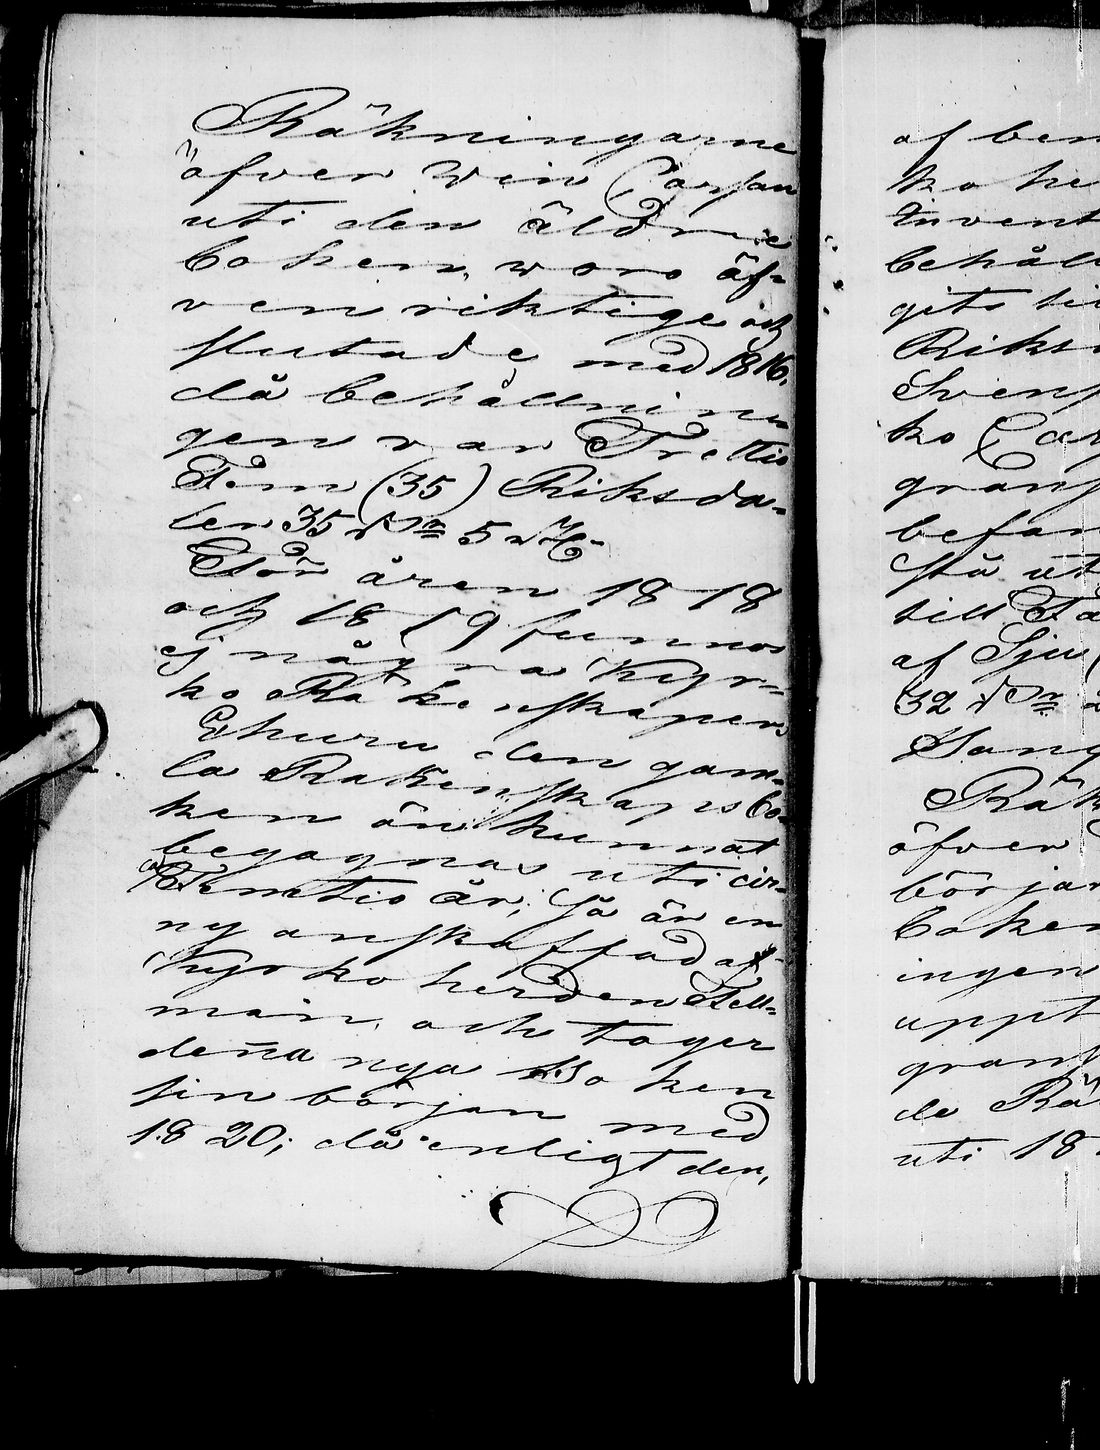 Räkningarne
öfver Win Cassan
uti den äldre
boken, woro äf-
ven riktige och
slutade med 1816.
då behållnin-
gen var Trettio
Fem (35) Riksda-
ler 35 Rdr 5 
För åren 1818
och 1819 funnos
ej några Kyr-
ko Räkenskaper.
Ehuru den gam-
la Räkenskaps bo-
ken än kunnat
begagnas uti cir-
ca Femtio år; så är en
ny anskaffad af
Kyrkoherden Fell-
man, och tager
deña nya Boken
sin början med
1820; då enligt den,
af ben
ko he
Invent
behåll
gits til
Riks
Svens
ko Cas
grans
befan
stå ut
till Fa
af Sju (
32 Rdr
Banc
Räk
öfver
börjar
boken
ingen
uppt
grans
de Rä
uti 18